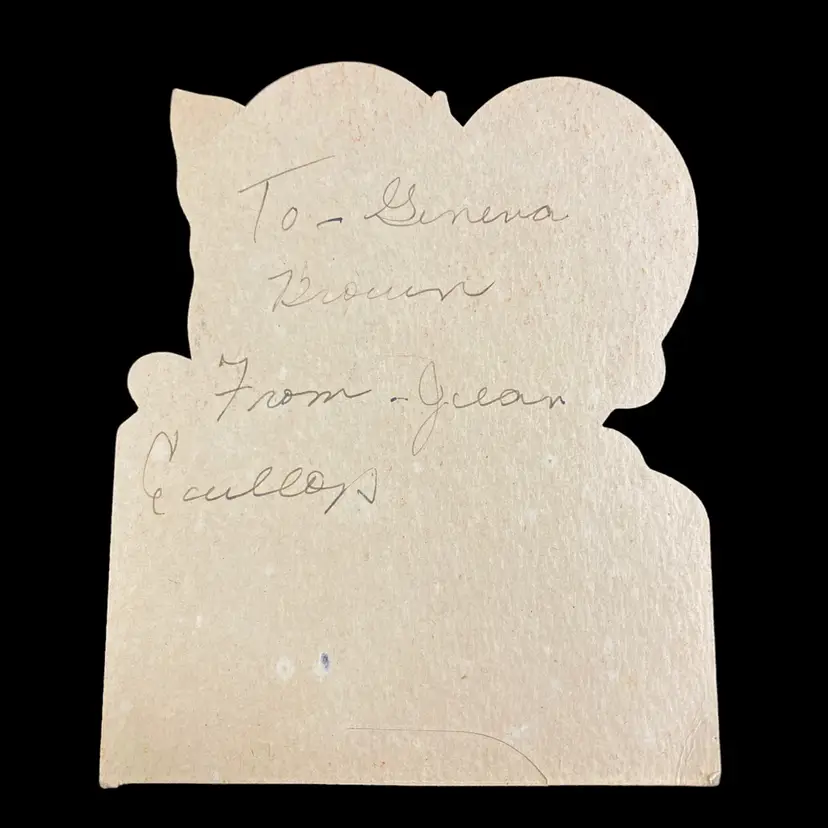 To - Geneva
Brown
From - Jean